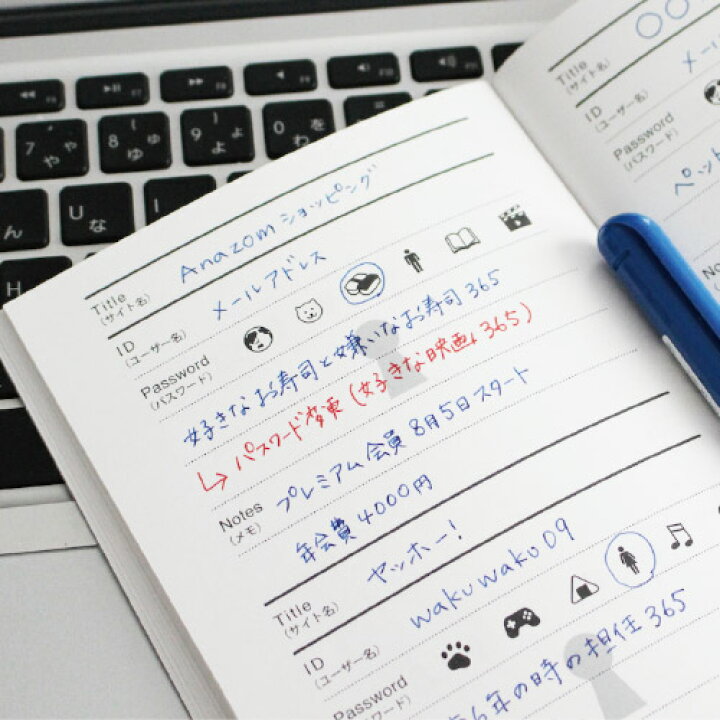 Title
(サイト名)
Anazomショッピング
ID
(ユーザー名)
メールアドレス
Password
(パスワード)
好きなお寿司と嫌いなお寿司365
↳パスワード変更(好きな映画、365)
Notes
(メモ)
プレミアム会員8月5日スタート
年会費4000円
Title
(サイト名)
ヤッホー!
ID
(ユーザー名)
wakuwaku09
Password
(パスワード)
6年の時の担任365
Title
(サイト名)
○○
ID
(ユーザー名)
メー
Password
(パスワード)
ペット
Notes
(メモ)
7
や
ゃ
8
ゆ
ゅ
9
よ
ょ
0
わ
を
U
な
ん
F7
F8
F9
F10
F11